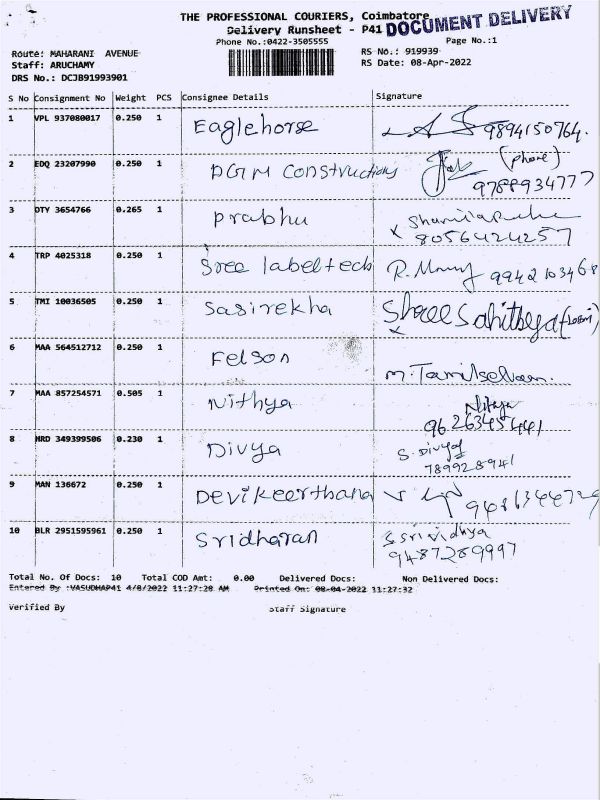 THE PROFESSIONAL COURIERS, Coimbatore
DOCUMENT DELIVERY
Delivery Runsheet - P41
Phone No.:0422-3505555
Page No.:1
Route: MAHARANI AVENUE
RS No.: 919939
Staff: ARUCHAMY
RS Date: 08-Apr-2022
DRS No.: DCJB91993901
S No Consignment No Weight PCS Consignee Details Signature
1 VPL 937080017 0.250 1 Eaglehorse 9894150764.
2 EDQ 23207990 0.250 1 DGM Constructions (phone)
9788934777
3 DTY 3654766 0.265 1 Prabhu
x 8056424257
4 TRP 4025318 0.250 1 Sree labeltech R. 9942103468
5 TMI 10036505 0.250 1 Sasirekha Shree
x
6 MAA 564512712 0.250 1 Felson
M. Tamilselvan.
7 MAA 857254571 0.505 1 Nithya Nithya
9626345441
8 HRD 349399506 0.230 1 Divya S. Divya
789928941
9 MAN 136672 0.250 1 Devikeerthana
10 BLR 2951595961 0.250 1 Sridharan S Srividhya
9487289997
Total No. Of Docs: 10 Total COD Amt: 0.00 Delivered Docs: Non Delivered Docs:
Entered By :VASUDHAP41 4/8/2022 11:27:28 AM Printed On: 08-04-2022 11:27:32
Verified By Staff Signature